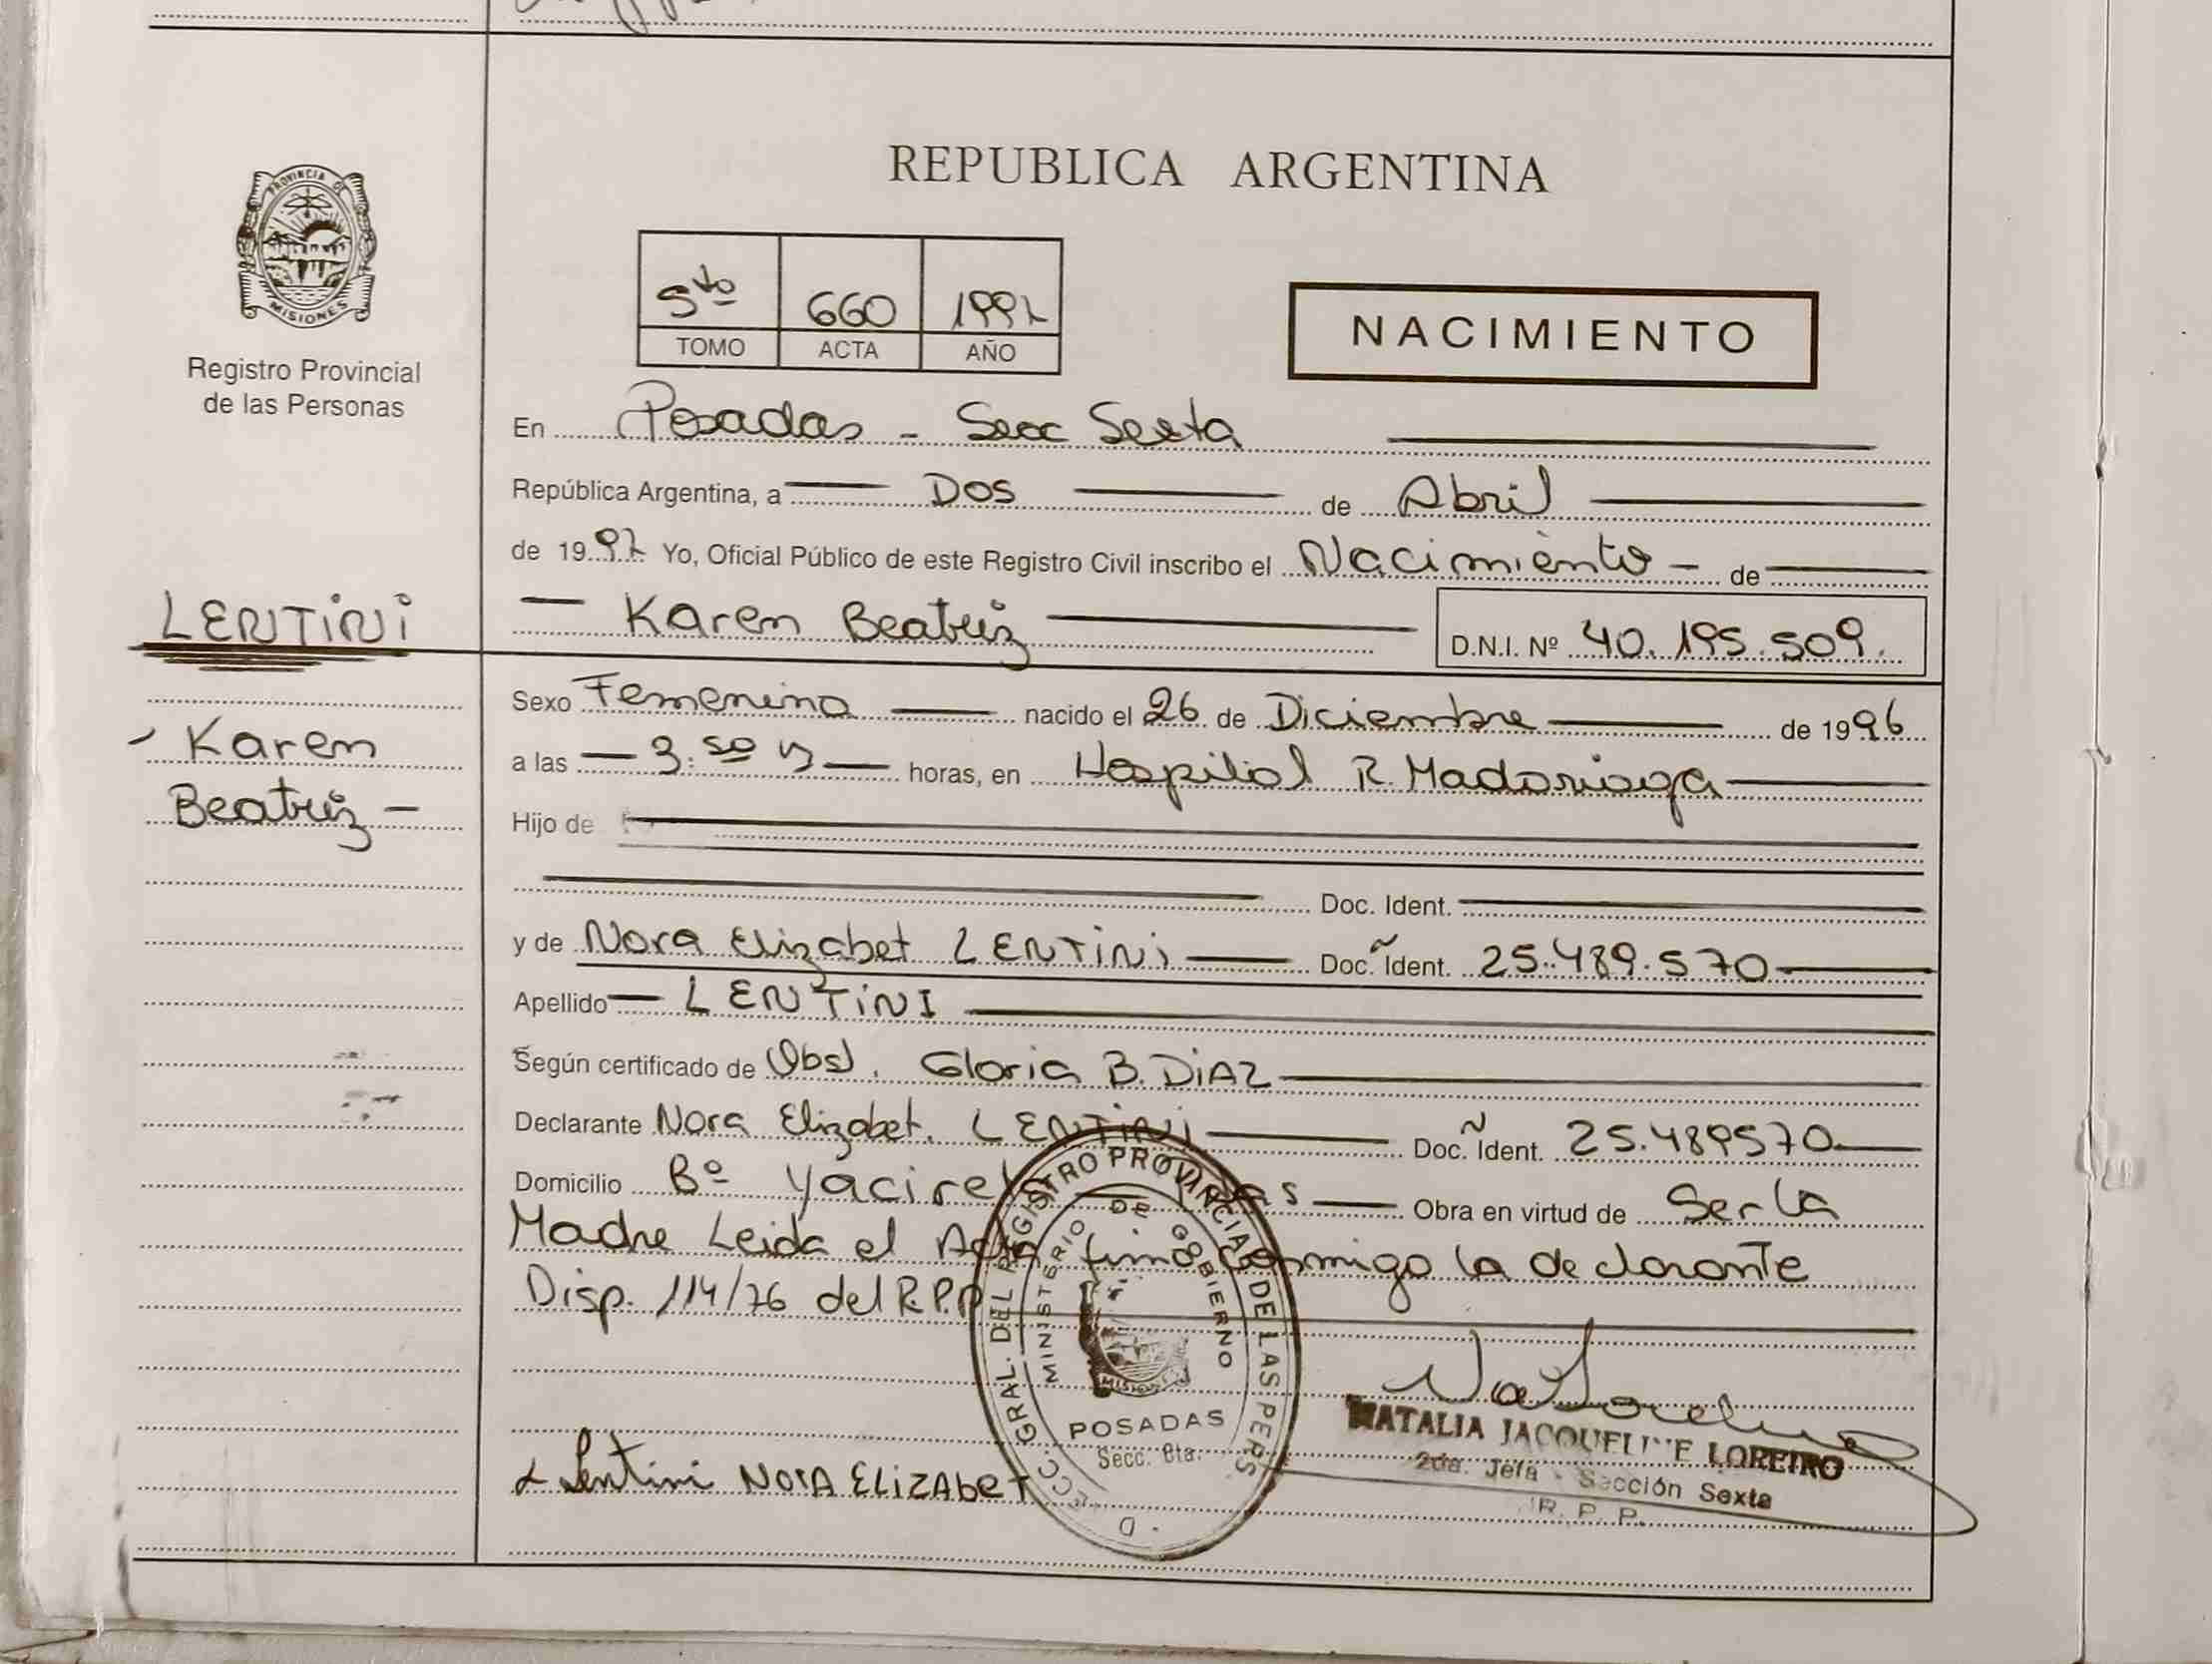 PROVINCIA DE
MISIONES
Registro Provincial
de las Personas
REPUBLICA ARGENTINA
5to 660 1997
TOMO ACTA AÑO
NACIMIENTO
En Posadas - Secc Sexta
República Argentina, a Dos de Abril
de 1997 Yo, Oficial Público de este Registro Civil inscribo el Nacimiento - de
LENTINI
Karen Beatriz D.N.I. Nº 40.195.509.
Sexo Femenino nacido el 26 de Diciembre de 1996
- Karen
a las 3:50 horas, en Hospital R. Madariaga
Beatriz -
Hijo de
Doc. Ident.
y de Nora Elizabet LENTINI Doc. Ident. 25.489.570
Apellido LENTINI
Según certificado de Obst. Gloria B. DiAZ
Declarante Nora Elizabet. LENTINI Doc. Ident. 25.489570
Domicilio Bº Obra en virtud de Ser la
Madre Leida el Acta firma conmigo la declarante
Disp. 114/76 del R.P.P
DIRECC. GRAL. DEL REGISTRO PROVINCIAL DE LAS PERS.
MINISTERIO DE GOBIERNO
MISIONES
POSADAS
Secc. 6ta.
NATALIA JACQUELINE LOREIRO
2da. Jefa - Sección Sexta
R. P. P.
Lentini NORA ELIZAbET